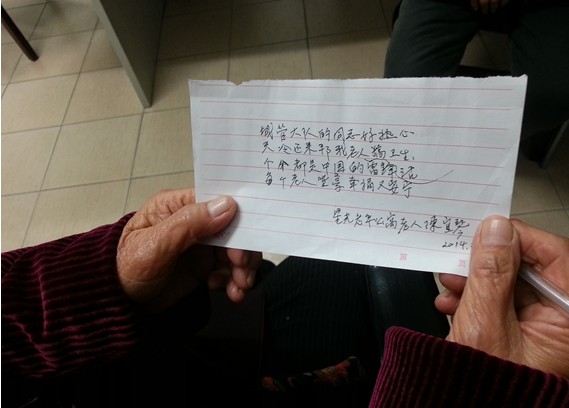 城管大队的同志好热心
天冷还来帮我老人搞卫生.
个个都是中国的雷锋活
每个老人坐享幸福又安宁
星光老年公寓老人陳
2014.